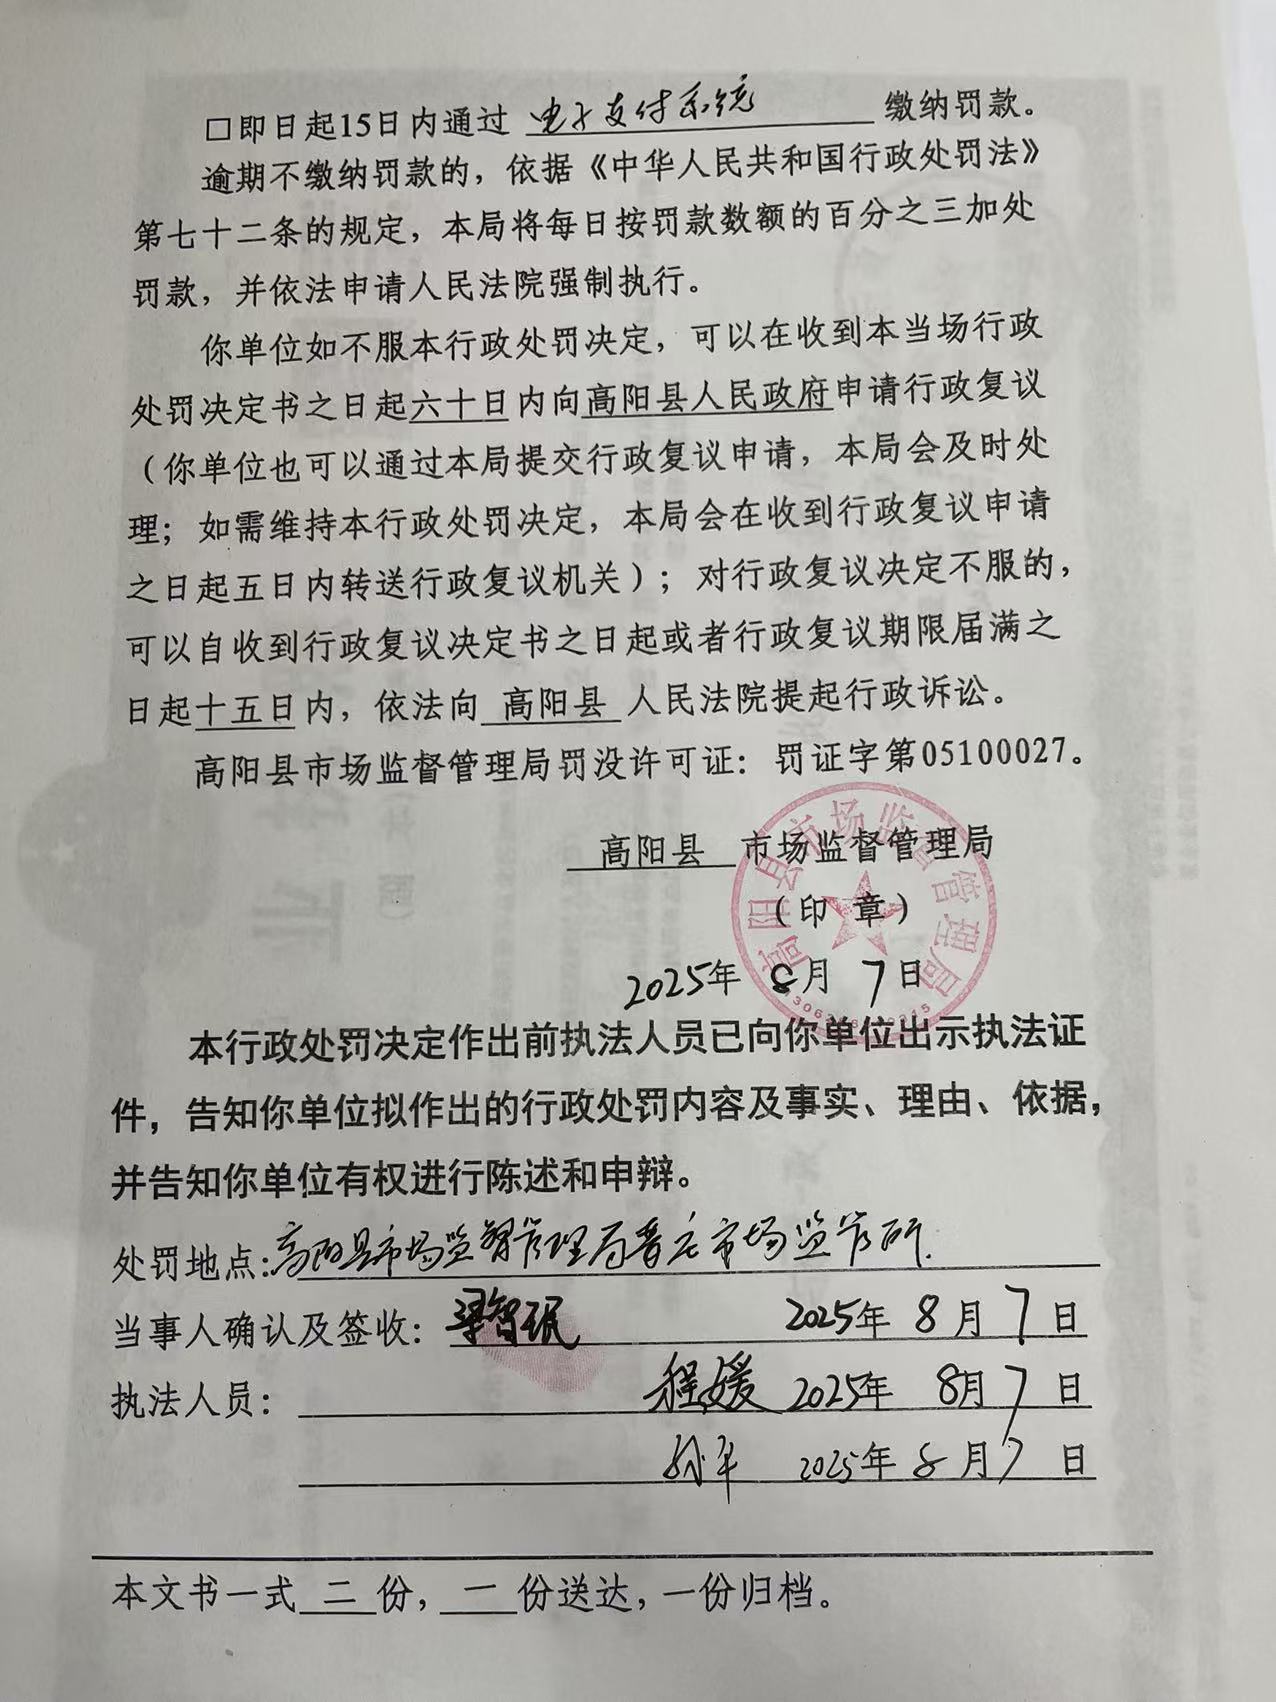 □即日起15日内通过 电子支付系统 缴纳罚款。
逾期不缴纳罚款的，依据《中华人民共和国行政处罚法》
第七十二条的规定，本局将每日按罚款数额的百分之三加处
罚款，并依法申请人民法院强制执行。
你单位如不服本行政处罚决定，可以在收到本当场行政
处罚决定书之日起六十日内向高阳县人民政府申请行政复议
（你单位也可以通过本局提交行政复议申请，本局会及时处
理；如需维持本行政处罚决定，本局会在收到行政复议申请
之日起五日内转送行政复议机关）；对行政复议决定不服的，
可以自收到行政复议决定书之日起或者行政复议期限届满之
日起十五日内，依法向 高阳县 人民法院提起行政诉讼。
高阳县市场监督管理局罚没许可证：罚证字第05100027。
高阳县 市场监督管理局
（印 章）
高阳县市场监督管理局
2025年 8月 7日
本行政处罚决定作出前执法人员已向你单位出示执法证
件，告知你单位拟作出的行政处罚内容及事实、理由、依据，
并告知你单位有权进行陈述和申辩。
处罚地点：高阳县市场监督管理局晋庄市场监管所.
当事人确认及签收：梁智珉 2025年 8月 7日
执法人员： 程媛 2025年 8月 7日
孙平 2025年 8月 7日
本文书一式 二 份， 一 份送达，一份归档。